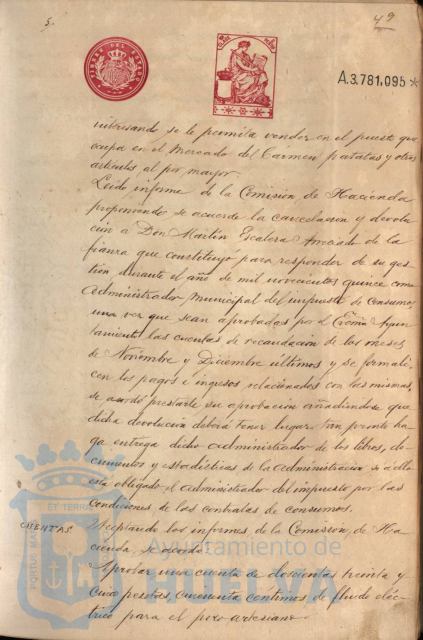 5.
49
TIMBRE DEL ESTADO
A.3.781,095 *
interesando se le permita vender en el puesto que
ocupa en el Mercado del Carmen patatas y otros
artículos al por mayor.
Leido informe de la Comisión de Hacienda
proponiendo se acuerde la cancelacion y devolu
ción a Don Martín Escalera Amado de la
fianza que constituyó para responder de su ges-
tión durante el año de mil novecientos quince como
Administrador municipal del impuesto de Consumos
una vez que sean aprobadas por el Excmo Ayun
tamiento las cuentas de recaudación de los meses
de Noviembre y Diciembre últimos y se formali-
cen los pagos e ingresos relacionados con las mismas,
se acordó prestarle su aprobación añadiendose que
dicha devolución deberá tener lugar tan pronto ha-
ga entrega dicho Administrador de los libros, do-
cumentos y estadísticas de la Administración si a ello
está obligado el Administrador del impuesto por las
condiciones de los contratos de consumos.
CUENTAS. Aceptando los informes de la Comisión de Ha
cienda, se acordó
Aprobar una cuenta de doscientas treinta y
cinco pesetas, cincuenta centimos de fluido eléc-
trico para el pozo artesiano
Ayuntamiento de
HUELVA